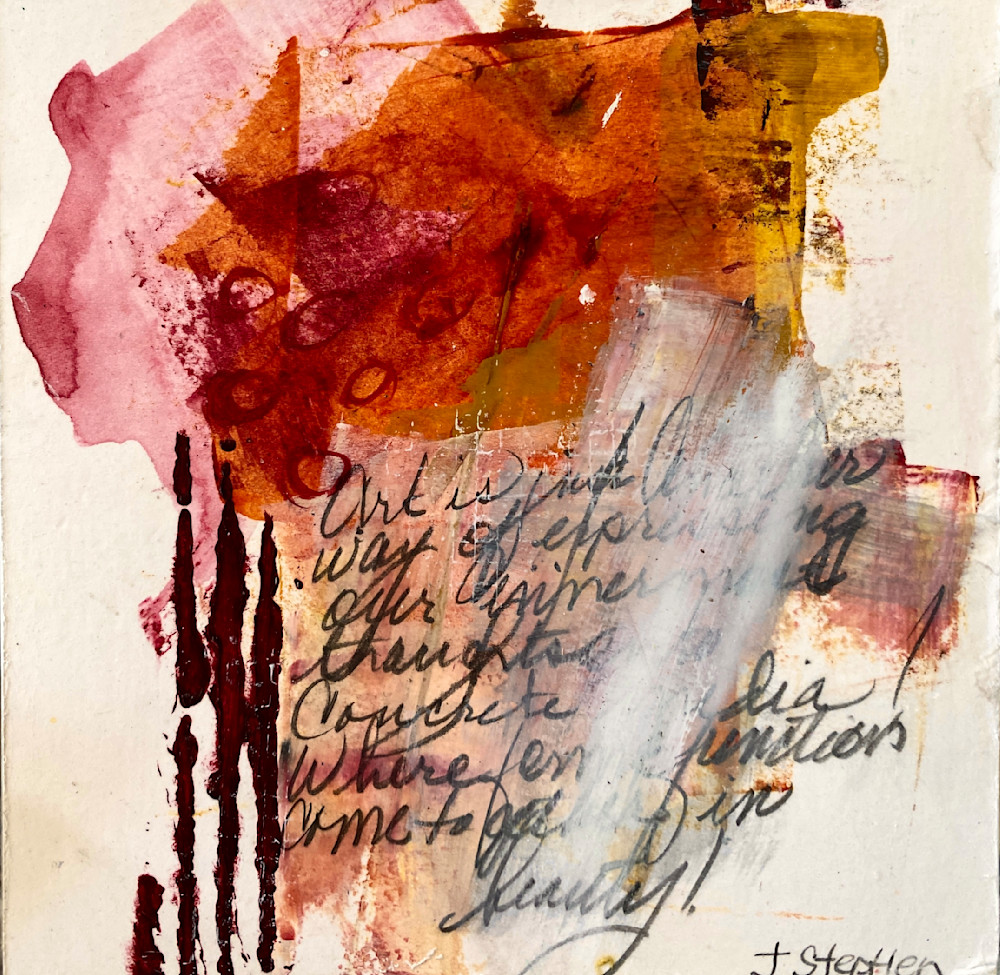 Art is just Another
way of expressing
our inner most
thoughts
Concrete media!
Where form functions
Come together in
beauty!
J. Stephen